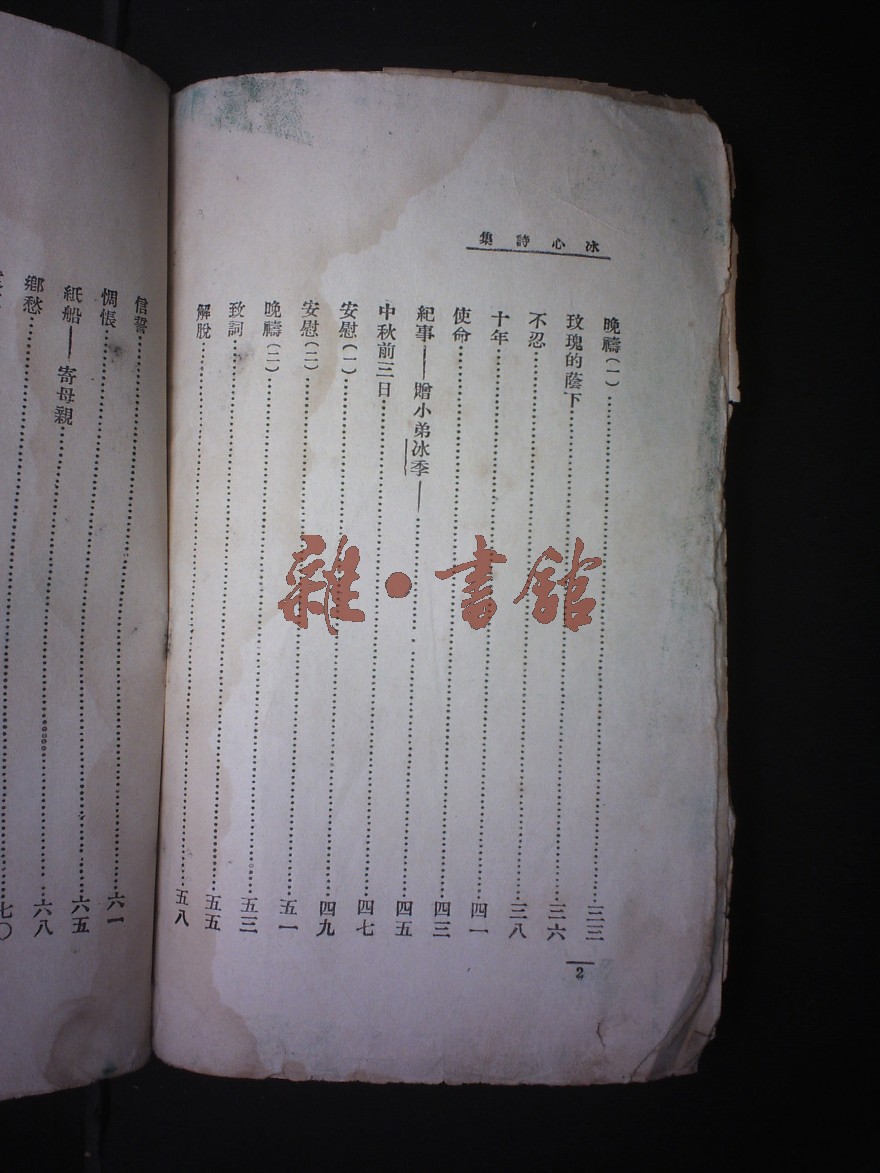 冰心詩集
晚禱(一)……三三
玫瑰的蔭下……三六
不忍……三八
十年……四一
使命……四三
紀事——贈小弟冰季——……四五
中秋前三日……四七
安慰(一)……四九
安慰(二)……五一
晚禱(二)……五三
致詞……五五
解脫……五八
2
信誓……六一
惆悵……六五
紙船——寄母親……六八
鄉愁……七〇
雜·書館